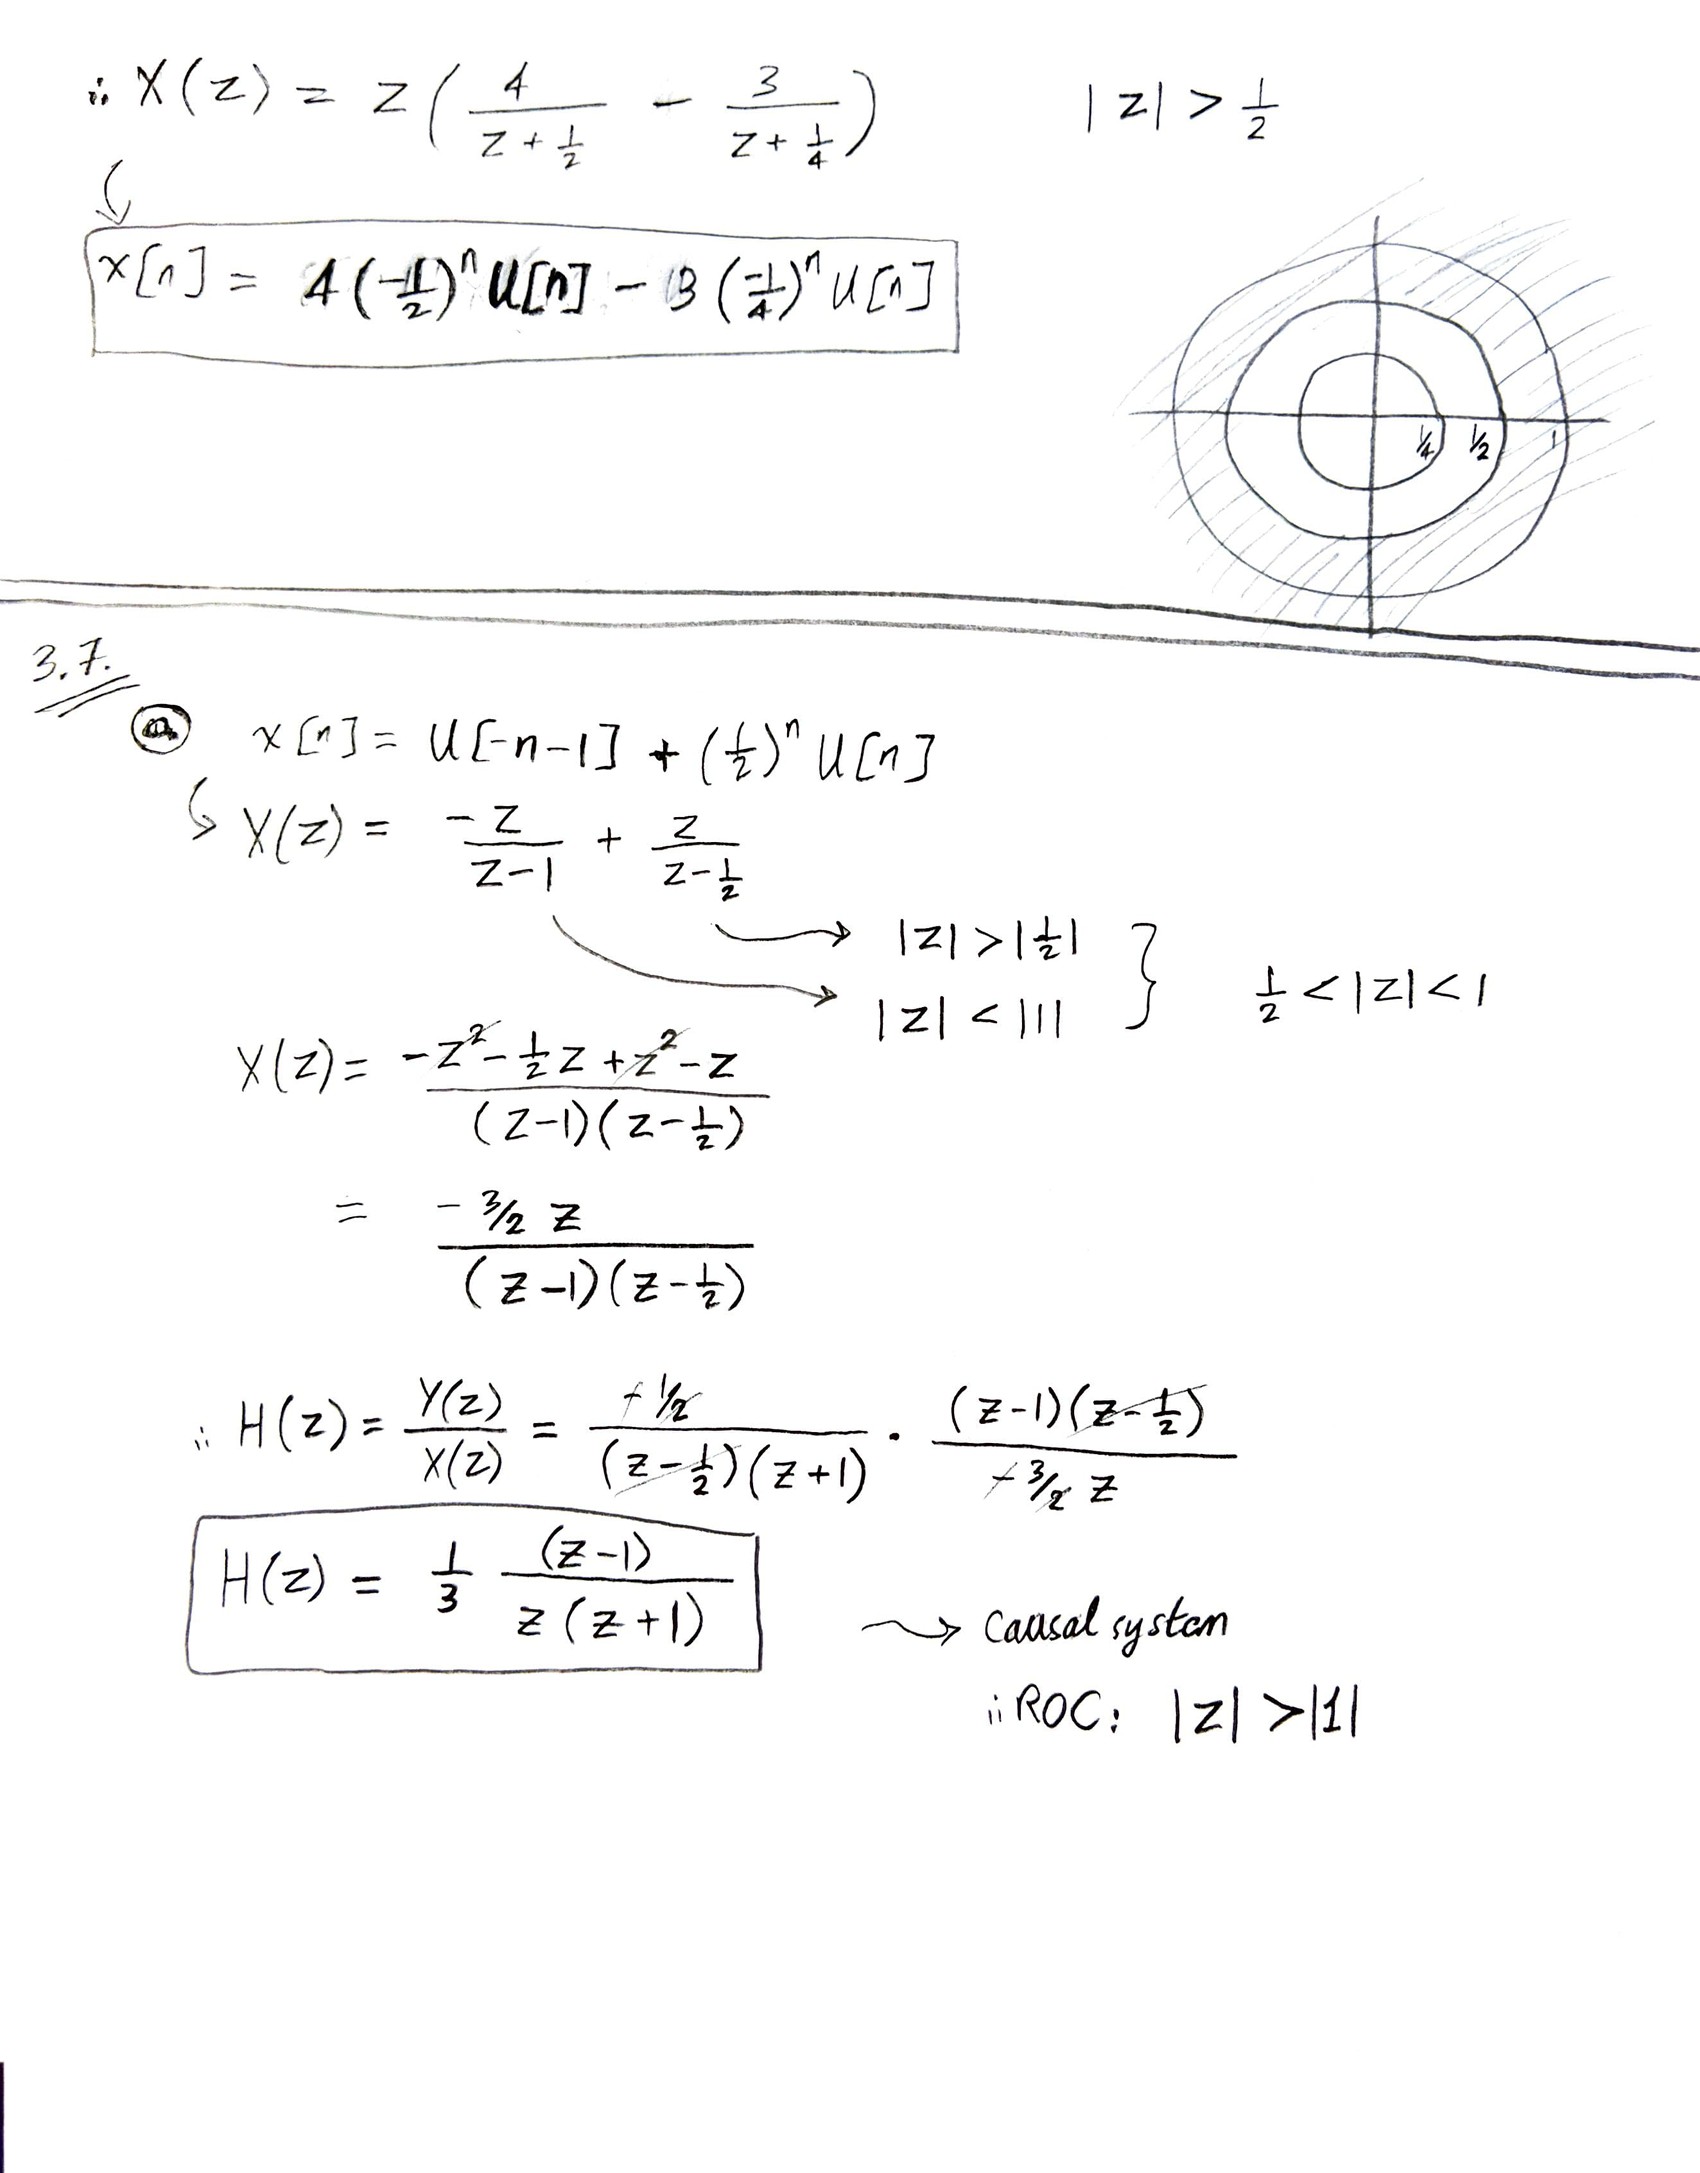 ∴ X(z) = z( 4/(z + 1/2) − 3/(z + 1/4) )    |z| > 1/2
x[n] = 4(−1/2)^n U[n] − 3(−1/4)^n U[n]
1/4 1/2 1
3.7.
ⓐ x[n] = U[−n−1] + (1/2)^n U[n]
X(z) = −z/(z−1) + z/(z−1/2)
|z| > |1/2|
|z| < |1| } 1/2 < |z| < 1
X(z) = (−z² − 1/2 z + z² − z)/((z−1)(z−1/2))
= (−3/2 z)/((z−1)(z−1/2))
∴ H(z) = Y(z)/X(z) = (−1/2)/((z−1/2)(z+1)) · ((z−1)(z−1/2))/(−3/2 z)
H(z) = 1/3 (z−1)/(z(z+1))
→ Causal system
∴ ROC: |z| > |1|